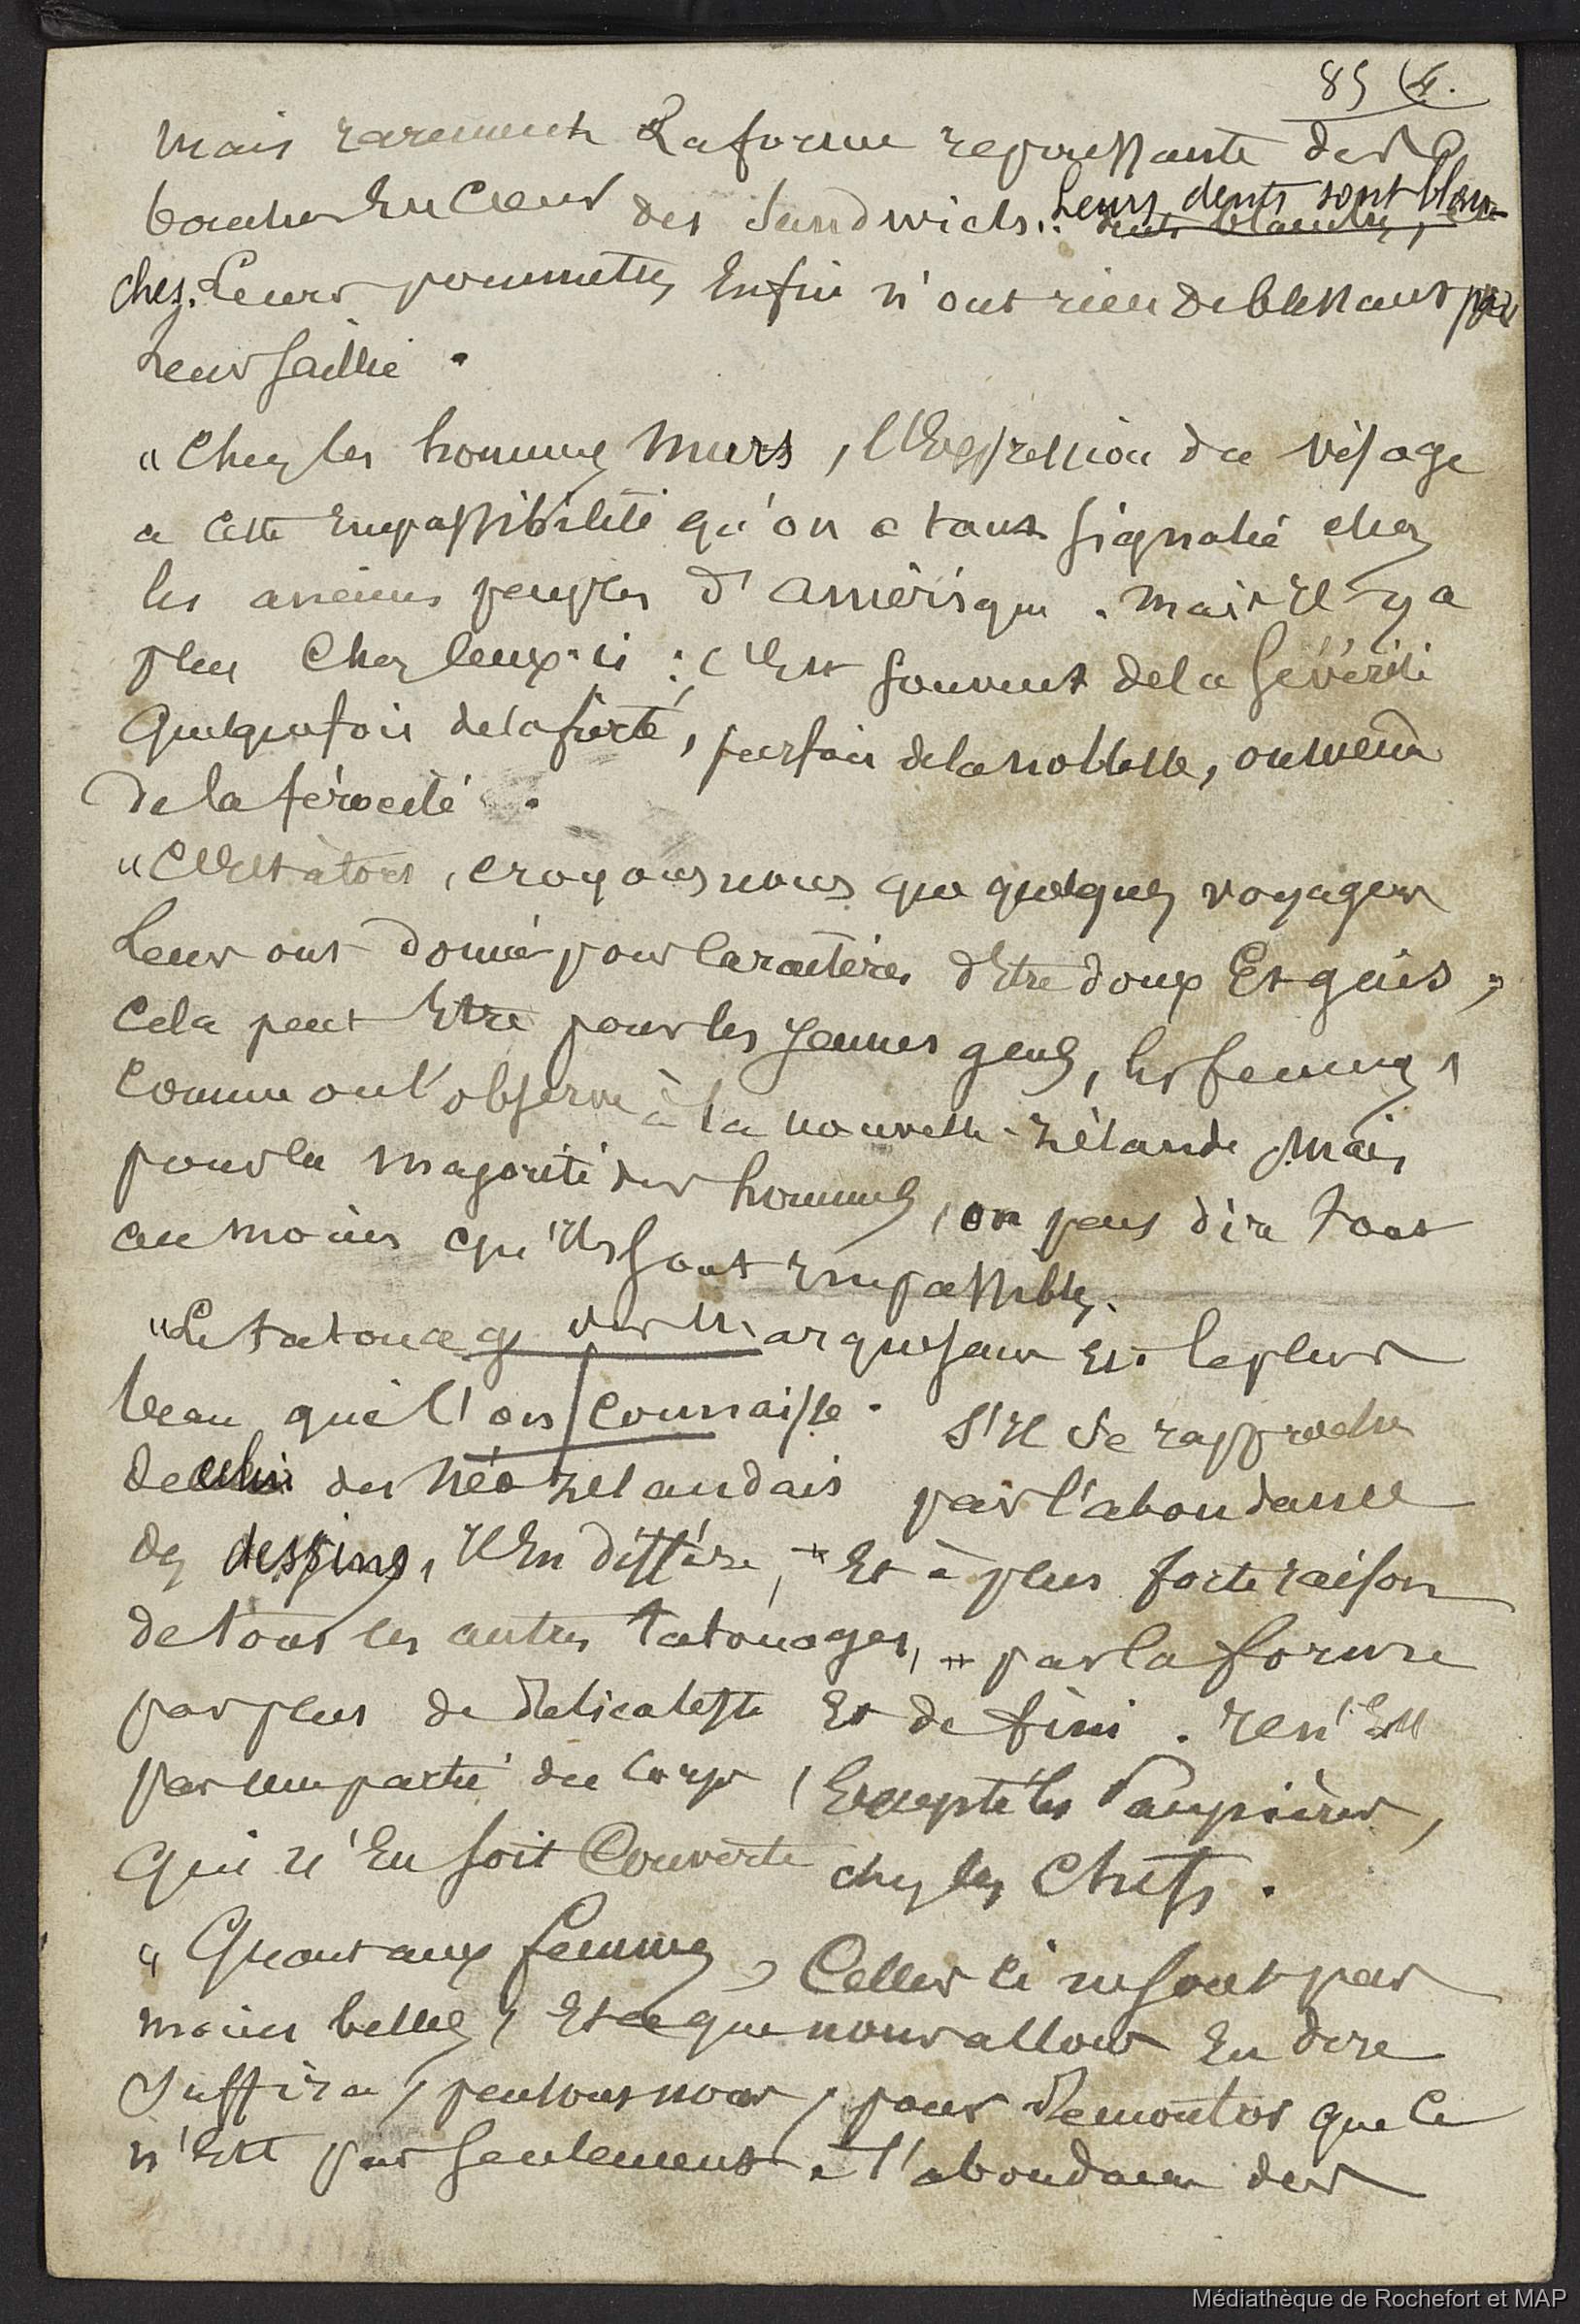 85
mais rarement la forme repoussante des
bouches en coeur des Sandwichs. Leurs dents sont blan-
dents blanches,
ches. Leurs pommettes enfin n'ont rien de blessant par
leur saillie.
"Chez les hommes murs, l'expression du visage
a cette impassibilité qu'on a tant signalé chez
les anciens peuples d'Amérique. Mais il y a
plus chez ceux-ci : c'est souvent de la sévérité
quelquefois de la fierté, parfois de la noblesse, ou même
de la férocité.
"C'est à tort, croyons nous que quelques voyageurs
leur ont donné pour caractères d'être doux et gais ;
cela peut être pour les jeunes gens, les femmes,
comme on l'observe à la nouvelle-Zélande mais
pour la majorité des hommes, on peut dire tout
au moins qu'ils sont impassibles.
"Le tatouage des Marquesans est le plus
beau que l'on connaisse. S'il se rapproche
de celui des néo zelandais par l'abondance
des dessins, il en diffère, et à plus forte raison
de tous les autres tatouages, par la forme
par plus de délicatesse et de fini. Il n'est
pas une partie du corps, excepté les paupières,
qui n'en soit couverte chez les chefs.
"Quant aux femmes, celles ci ne sont pas
moins belles, et ce que nous allons en dire
suffira, pensons nous, pour démontrer que ce
n'est pas seulement à l'abondance des
Médiathèque de Rochefort et MAP